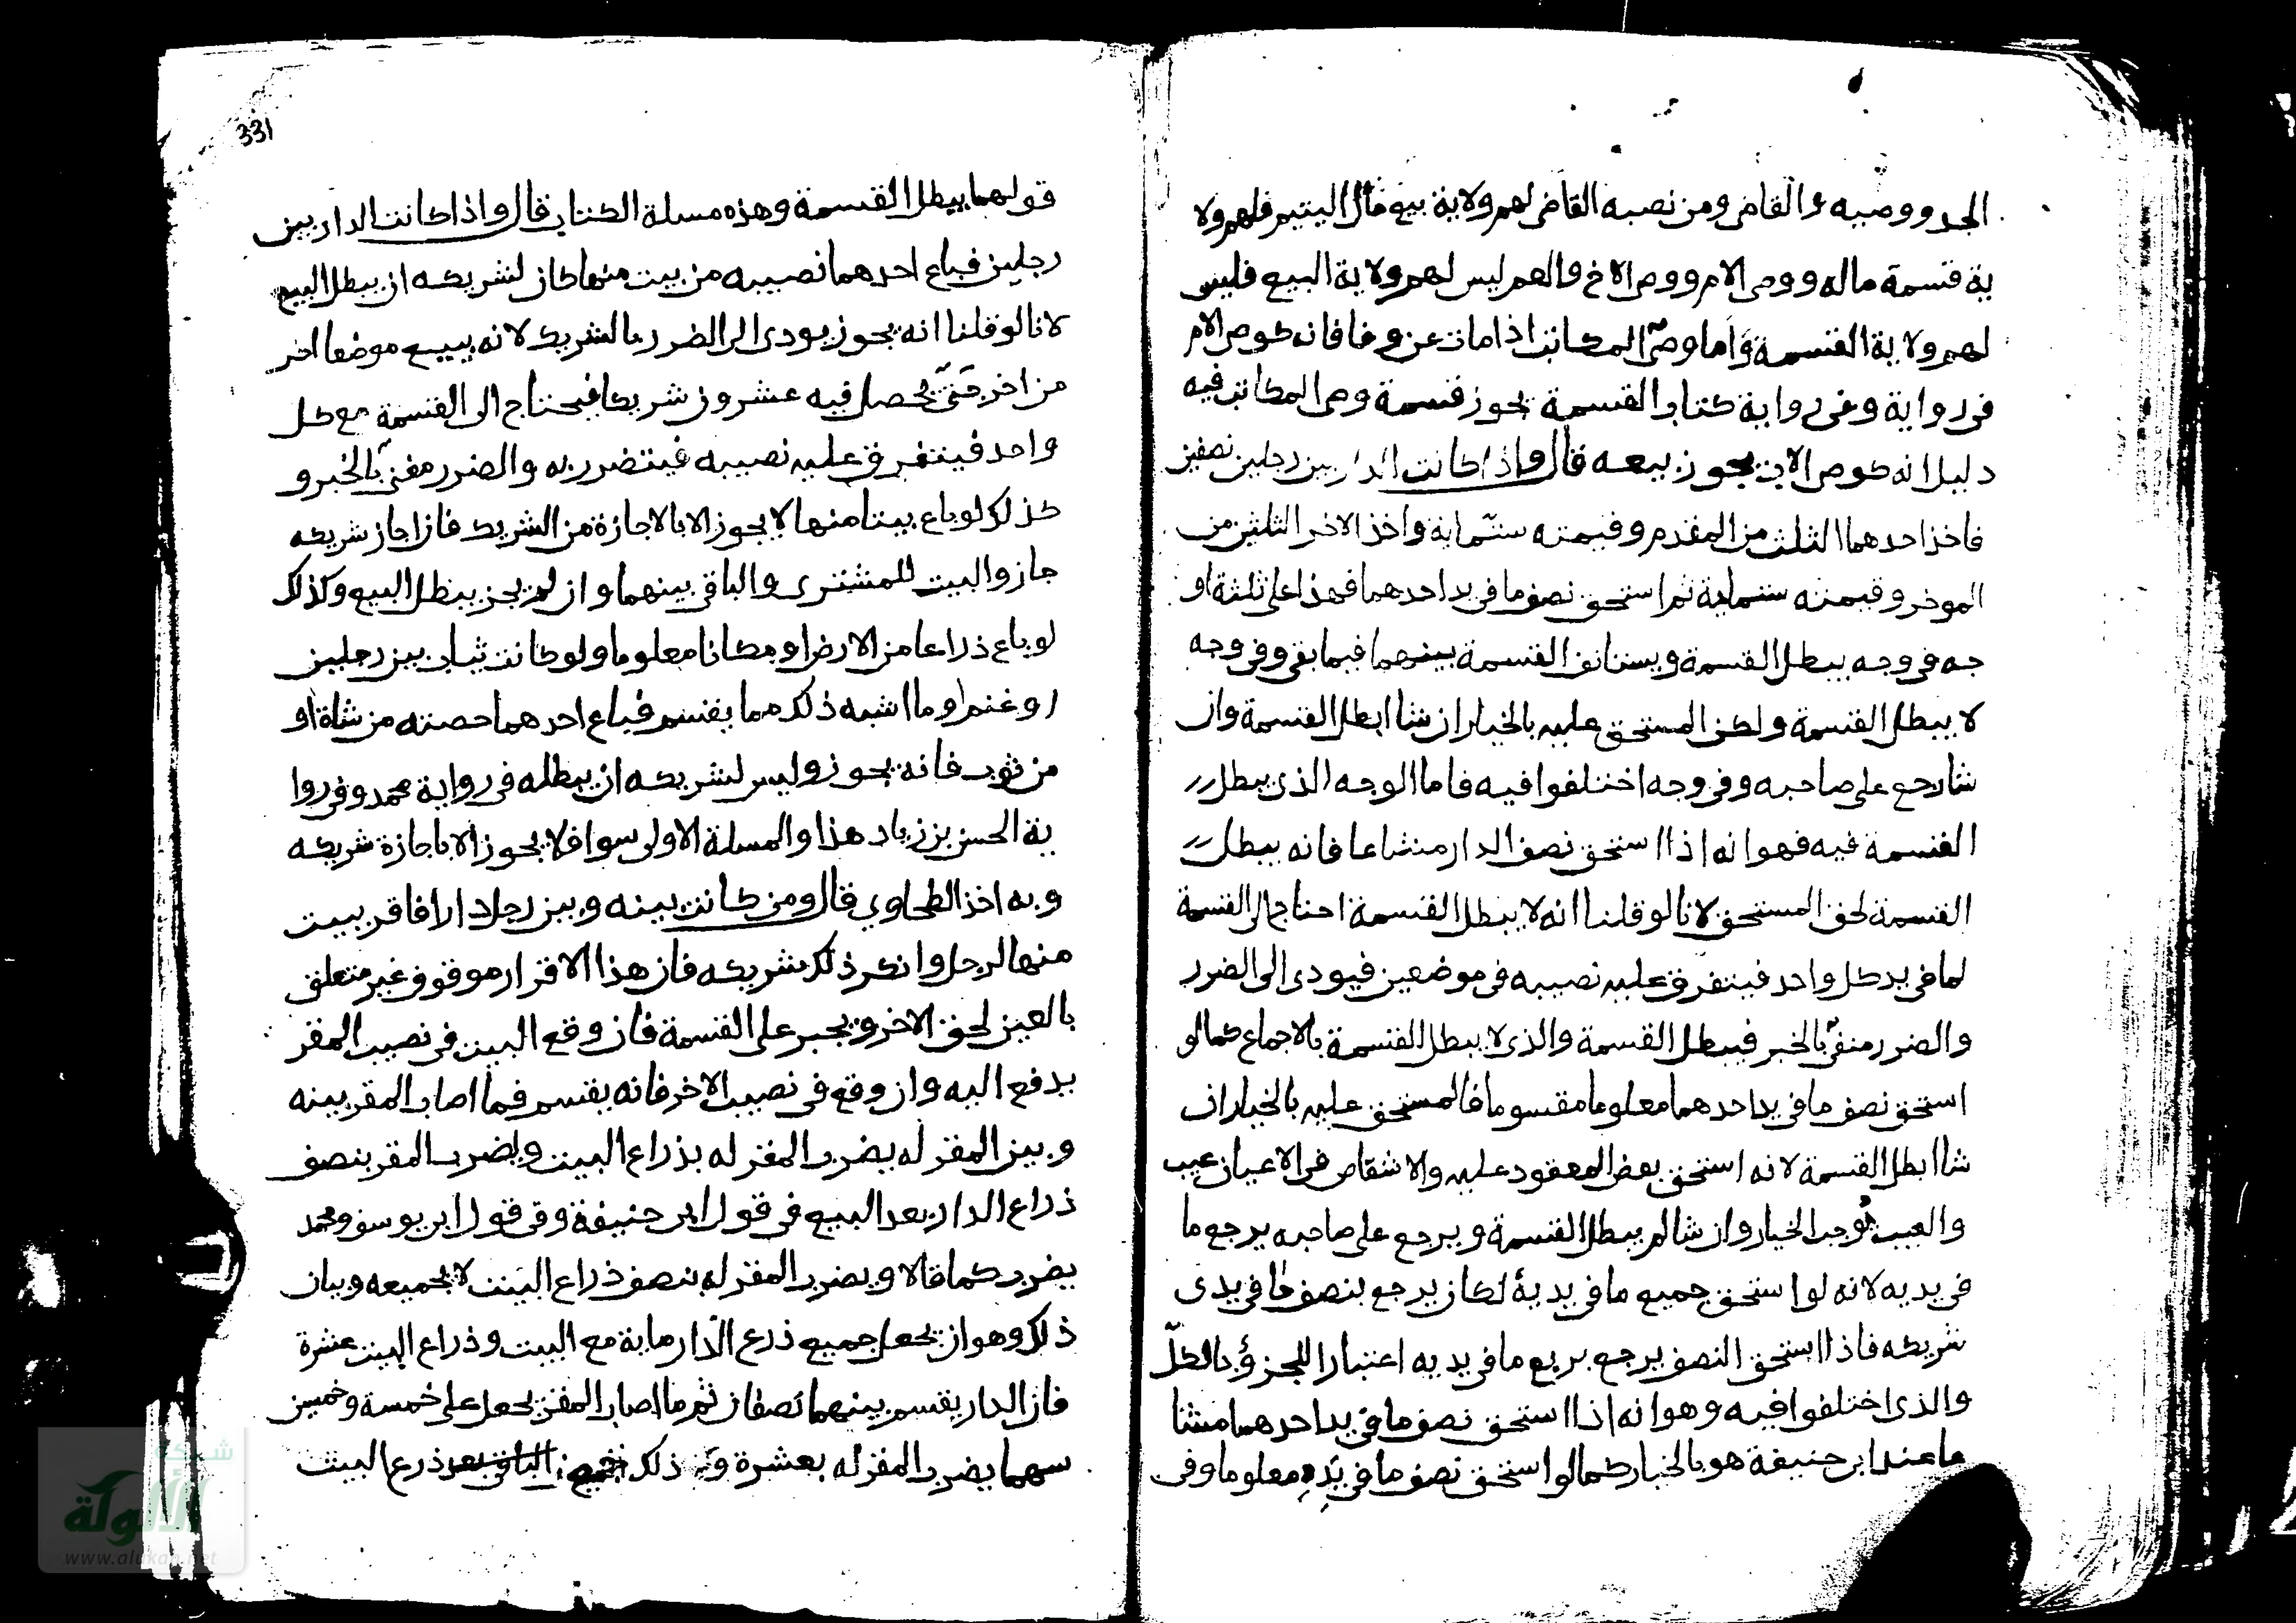 الجد ووصيه والقاضى ومن نصبه القاضى لهم ولاية بيع مال اليتيم فلهم ولا
ية قسمة ماله ووصى الام ووصى الاخ والعم ليس لهم ولاية البيع فليس
لهم ولاية القسمة وأما وصىّ المكاتب اذا مات عن وفا فانه كوصى الام
فى رواية وفى رواية كتاب القسمة يجوز قسمة وصى المكاتب فيه
دليل انه كوصى الاب يجوز بيعه قال واذا كانت الدار بين رجلين نصفين
فاخذ احدهما الثلث من المقدم وقيمته ستّماية واخذ الاخر الثلثين من
الموخر وقيمته ستماية ثم استحق نصف ما فى يد احدهما فهذا على ثلثة او
جه فى وجه يبطل القسمة ويستانف القسمة بينهما فيما بقى وفى وجه
لا يبطل القسمة ولكن المستحق عليه بالخيار ان شا ابطل القسمة وان
شا رجع على صاحبه وفى وجه اختلفوا فيه فاما الوجه الذى يبطل
القسمة فيه فهو انه اذا استحق نصف الدار مشاعا فانه يبطل
القسمة لحق المستحق لانا لو قلنا انه لا يبطل القسمة احتاج الى القسمة
لما فى يد كل واحد فيتفرق عليه نصيبه فى موضعين فيودى الى الضرر
والضرر منفىّ بالخبر فيبطل القسمة والذى لا يبطل القسمة بالاجماع كما لو
استحق نصف ما فى يد احدهما معلوما مقسوما فالمستحق عليه بالخيار ان
شا ابطل القسمة لانه استحق بعض المعقود عليه والاشقاص فى الاعيان عيب
والعيب يُوجب الخيار وان شا لم يبطل القسمة ويرجع على صاحبه يرجع ما
فى يديه لانه لو استحق جميع ما فى يديه لكان يرجع بنصف ما فى يدى
شريكه فاذا استحق النصف يرجع بربع ما فى يديه اعتبارا للجزؤ بالكلّ
والذى اختلفوا فيه وهو انه اذا استحق نصف ما فى يد احدهما مشا
عا عند ابى حنيفة هو بالخيار كما لو استحق نصف ما فى يَدِهِ معلوما وفى
331
قولهما يبطل القسمة وهذه مسلة الكتاب قال واذا كانت الدار بين
رجلين فباع احدهما نصيبه من بيت منها كان لشريكه ان يبطل البيع
لانا لو قلنا انه يجوز يودى الى الضرر بالشريك لانه يبيع موضعا اخر
من اخر حَتّى يحصل فيه عشرون شريكا فيحتاج الى القسمة مع كل
واحد فيتفرق عليه نصيبه فيتضرر به والضرر منفىّ بالخبر و
كذلك لو باع بيتا منها لا يجوز الا بالاجازة من الشريك فان اجاز شريكه
جاز والبيت للمشترى والباقى بينهما وان لم يجز يبطل البيع وكذلك
لو باع ذراعا من الارض او مكانا معلوما ولو كانت ثياب بين رجلين
او غنم او ما اشبه ذلك مما يقسم فباع احدهما حصته من شاة او
من ثوب فانه يجوز وليس لشريكه ان يبطله فى رواية محمد وفى روا
ية الحسن بن زياد هذا والمسلة الاولى سوا فلا يجوز الا باجازة شريكه
وبه اخذ الطحاوي قال ومن كانت بينه وبين رجل دارا فاقر ببيت
منها لرجل وانكر ذلك شريكه فان هذا الاقرار موقوف غير متعلق
بالعين لحق الاخر ويجبر على القسمة فان وقع البيت فى نصيب المقر
يدفع اليه وان وقع فى نصيب الاخر فانه يقسم فما اصاب المقر بينه
وبين المقر له يضرب المقر له بذراع البيت ويضرب المقر بنصف
ذراع الدار بعد البيع فى قول ابى حنيفة وفى قول ابى يوسف ومحمد
يضرب كما قالا ويضرب المقر له بنصف ذراع البيت لا بجميعه وبيان
ذلك وهو ان يجعل جميع ذرع الدّار ماية مع البيت وذراع البيت عشرة
فان الدار يقسم بينهما نصفان ثم ما اصاب المقر يجعل على خمسة وخمسين
سهما يضرب المقر له بعشرة وذلك جميع ذرع البيت